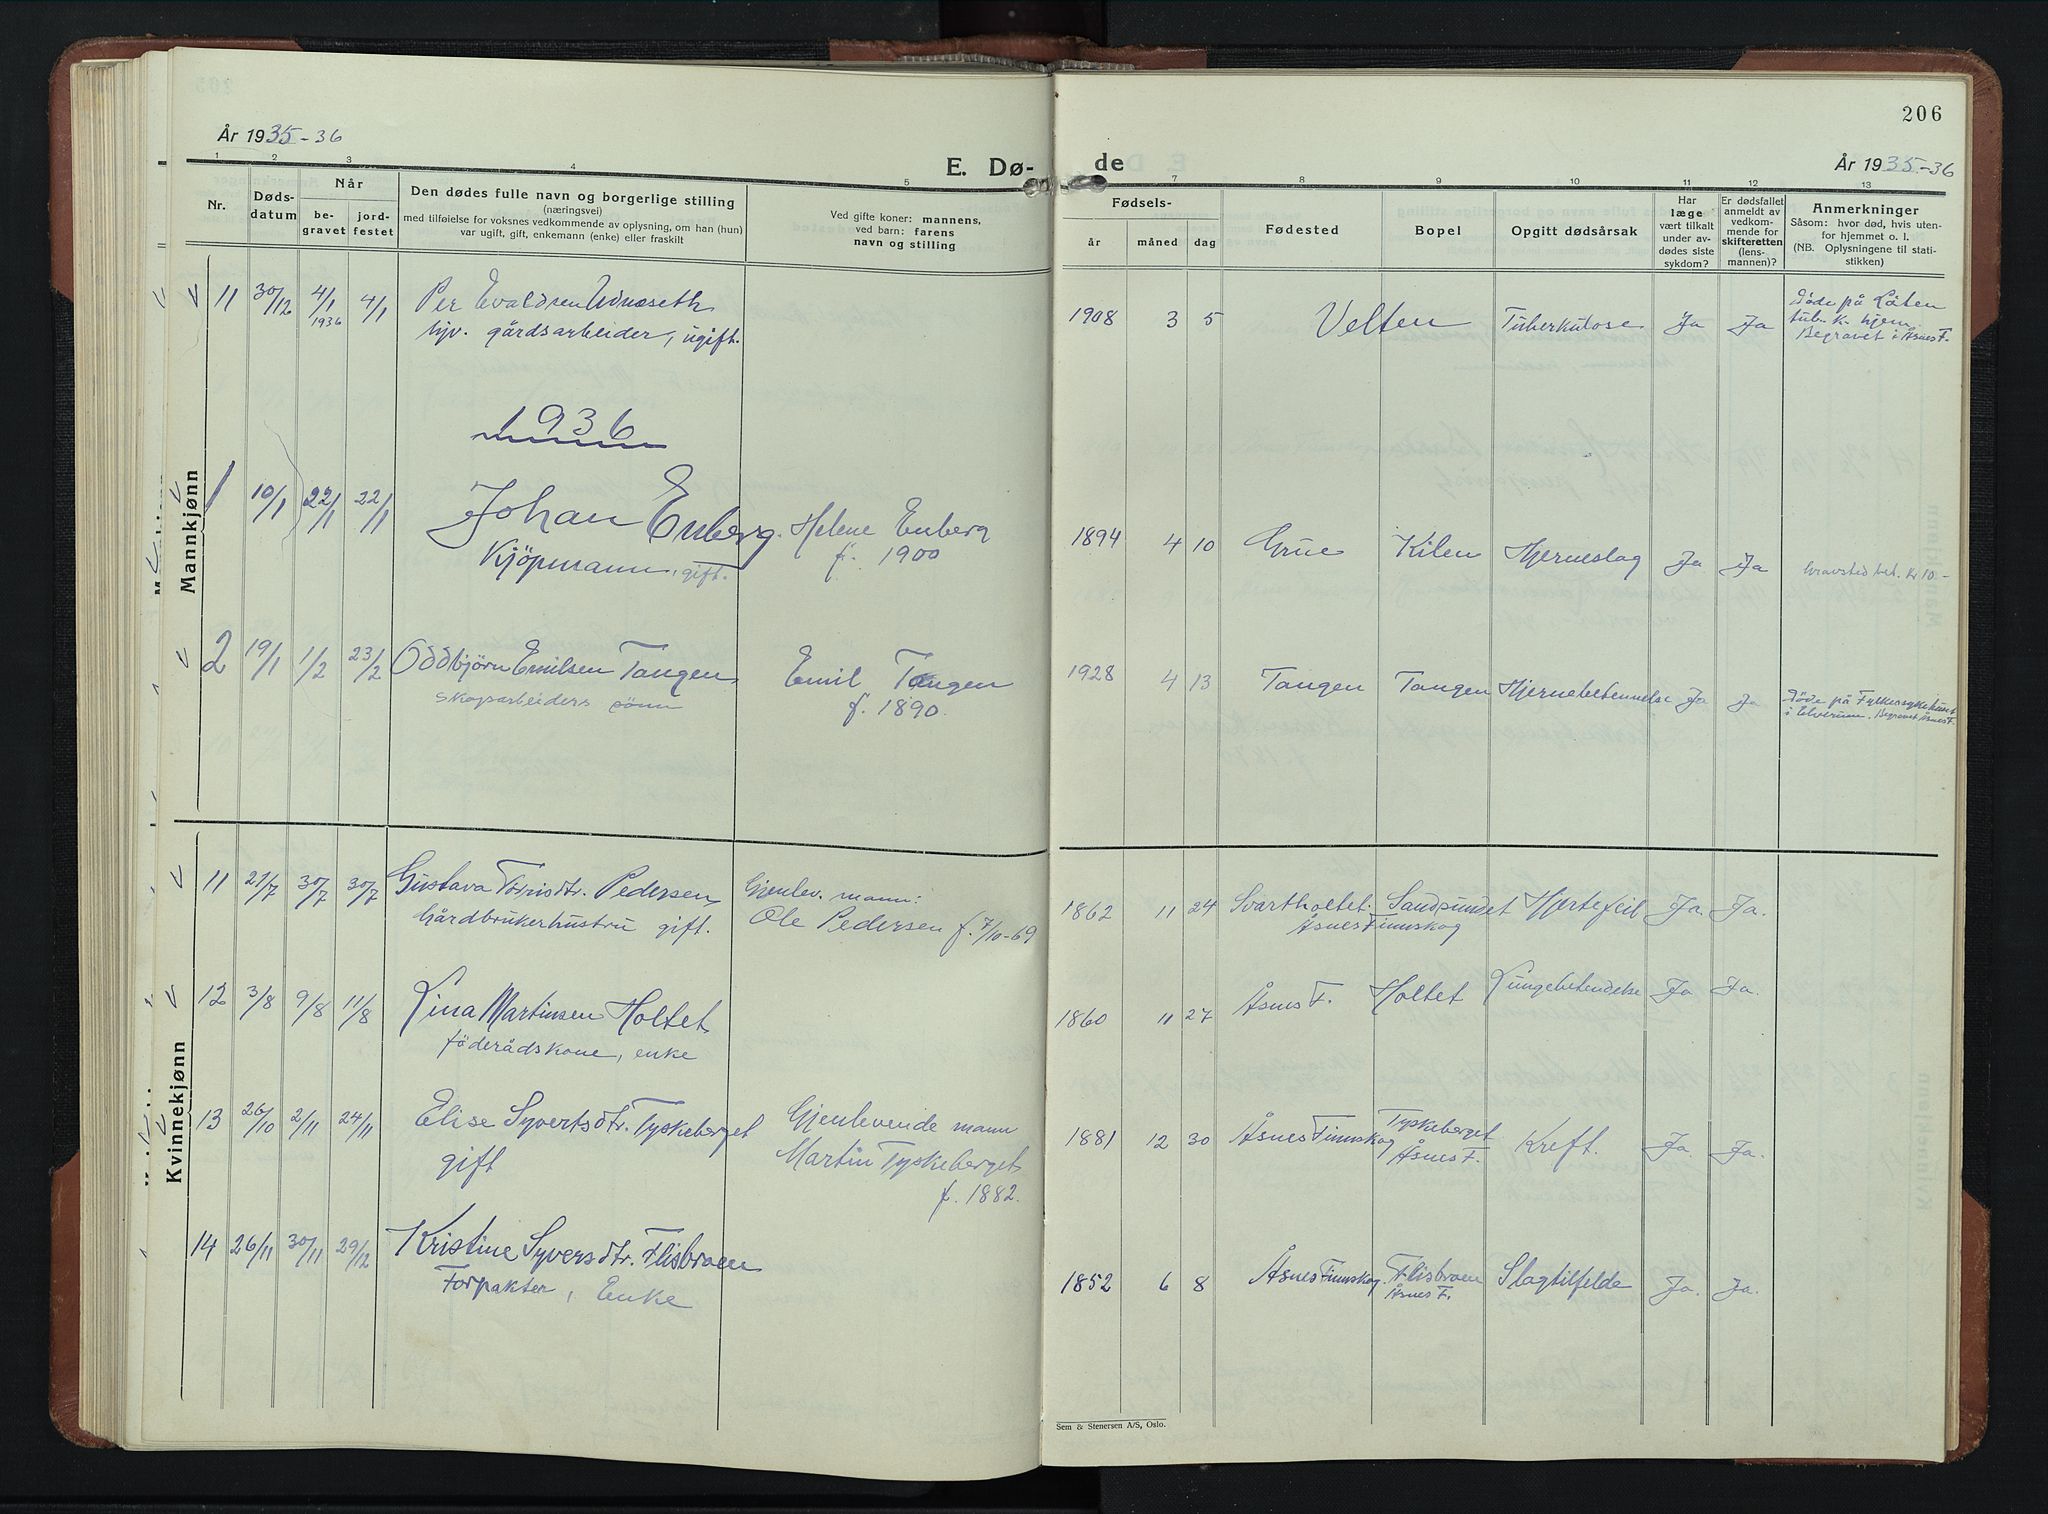 206
År 1935-36
År 1935-36
E. Dø-
de
1 2 3 4 5
7 8 9 10 11 12 13
Nr.
Døds-
datum
Når
be-
gravet
jord-
festet
Den dødes fulle navn og borgerlige stilling
(næringsvei)
med tilføielse for voksnes vedkommende av oplysning, om han (hun)
var ugift, gift, enkemann (enke) eller fraskilt
Ved gifte koner: mannens,
ved barn: farens
navn og stilling
Fødsels-
år måned dag
Fødested
Bopel
Opgitt dødsårsak
Har
læge
vært tilkalt
under av-
dødes siste
sykdom?
Er dødsfallet
anmeldt av
vedkom-
mende for
skifteretten
(lens-
mannen)?
Anmerkninger
Såsom: hvor død, hvis uten-
for hjemmet o. l.
(NB. Oplysningene til stati-
stikken)
Mannkjønn
11 30/12 4/1 1936 4/1 Per Evaldsen Udnæseth
hjv. gårdsarbeider, ugift.
1908 3 5 Velten Tuberkulose Ja Ja
Døde på Løten
tub. k. hjem
Begravet i Åsnes F.
1936
1 10/1 22/1 22/1 Johan Enberg.
Kjöpmann, gift.
Helene Enberg
f. 1900
1894 4 10 Grue Kilen Hjerneslag Ja Ja Gravsted bet. Kr 10-
2 19/1 1/2 23/2 Oddbjörn Emilsen Tangen
skogsarbeiders sönn
Emil Tangen
f. 1890.
1928 4 13 Tangen Tangen Hjernebetennelse Ja Ja
Döde på Fylkessykehuset
i Elverum. Begravet Åsnes F.
Kvinnekjønn
11 27/7 30/7 30/7 Gustava Tornisdtr. Pedersen
Gårdbrukerhustru gift.
Gjenlev. mann:
Ole Pedersen f. 7/10-69
1862 11 24 Svartholtet Sandsundet Hjertefeil Ja. Ja.
Åsnes Finnskog
12 3/8 9/8 11/8 Lina Martinsen Holtet
föderådskone, enke
1860 11 27 Åsnes F. Holtet Lungebetendelse Ja Ja.
13 26/10 2/11 24/11 Elise Syvertsdtr. Tyskeberget
gift
Gjenlevende mann
Martin Tyskeberget
f. 1882.
1881 12 30 Åsnes Finnskog Tyskeberget
Åsnes F.
Kreft. Ja Ja.
14 26/11 30/11 29/12 Kristine Syversdtr. Flisbroen
Forpakter, Enke
1852 6 8 Åsnes Finnskog. Flisbroen
Åsnes F.
Slagtilfelde Ja. Ja.
Sem & Stenersen A/S, Oslo.